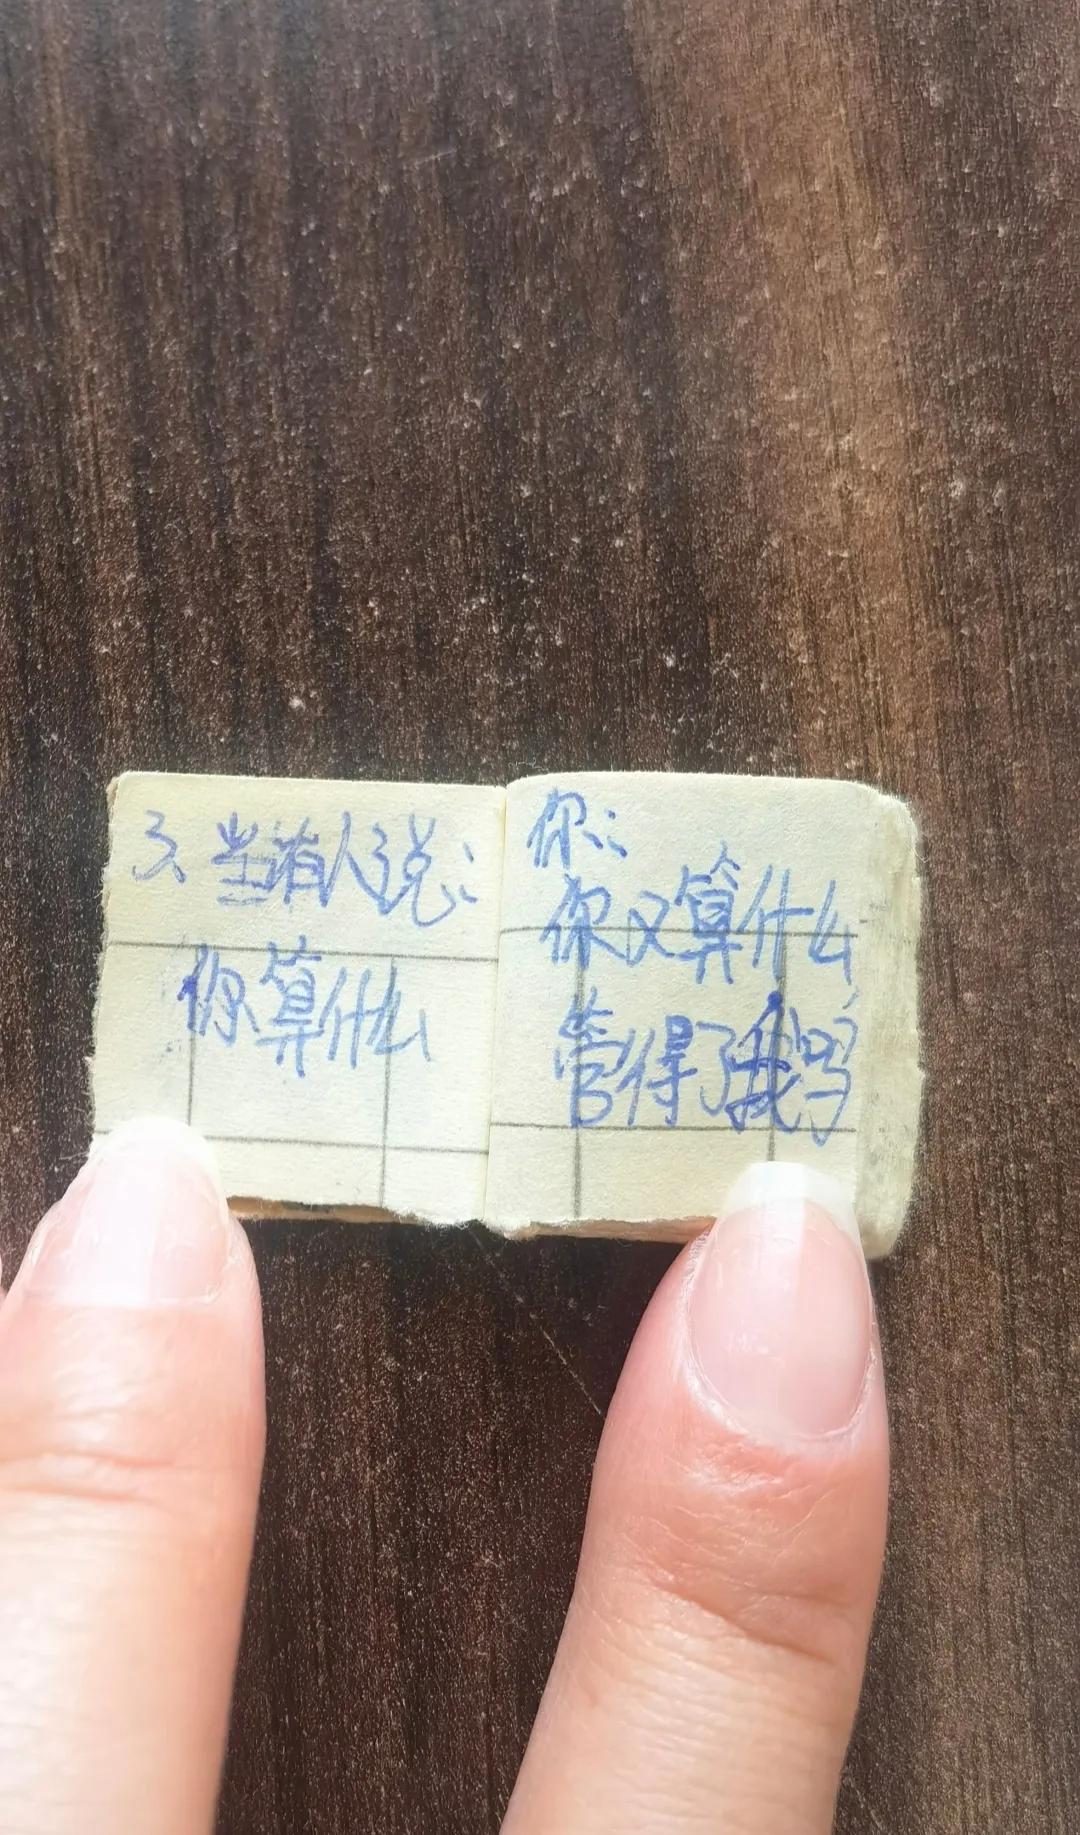 3、当有人说:
你算什么
你:
你又算什么
管得了我吗